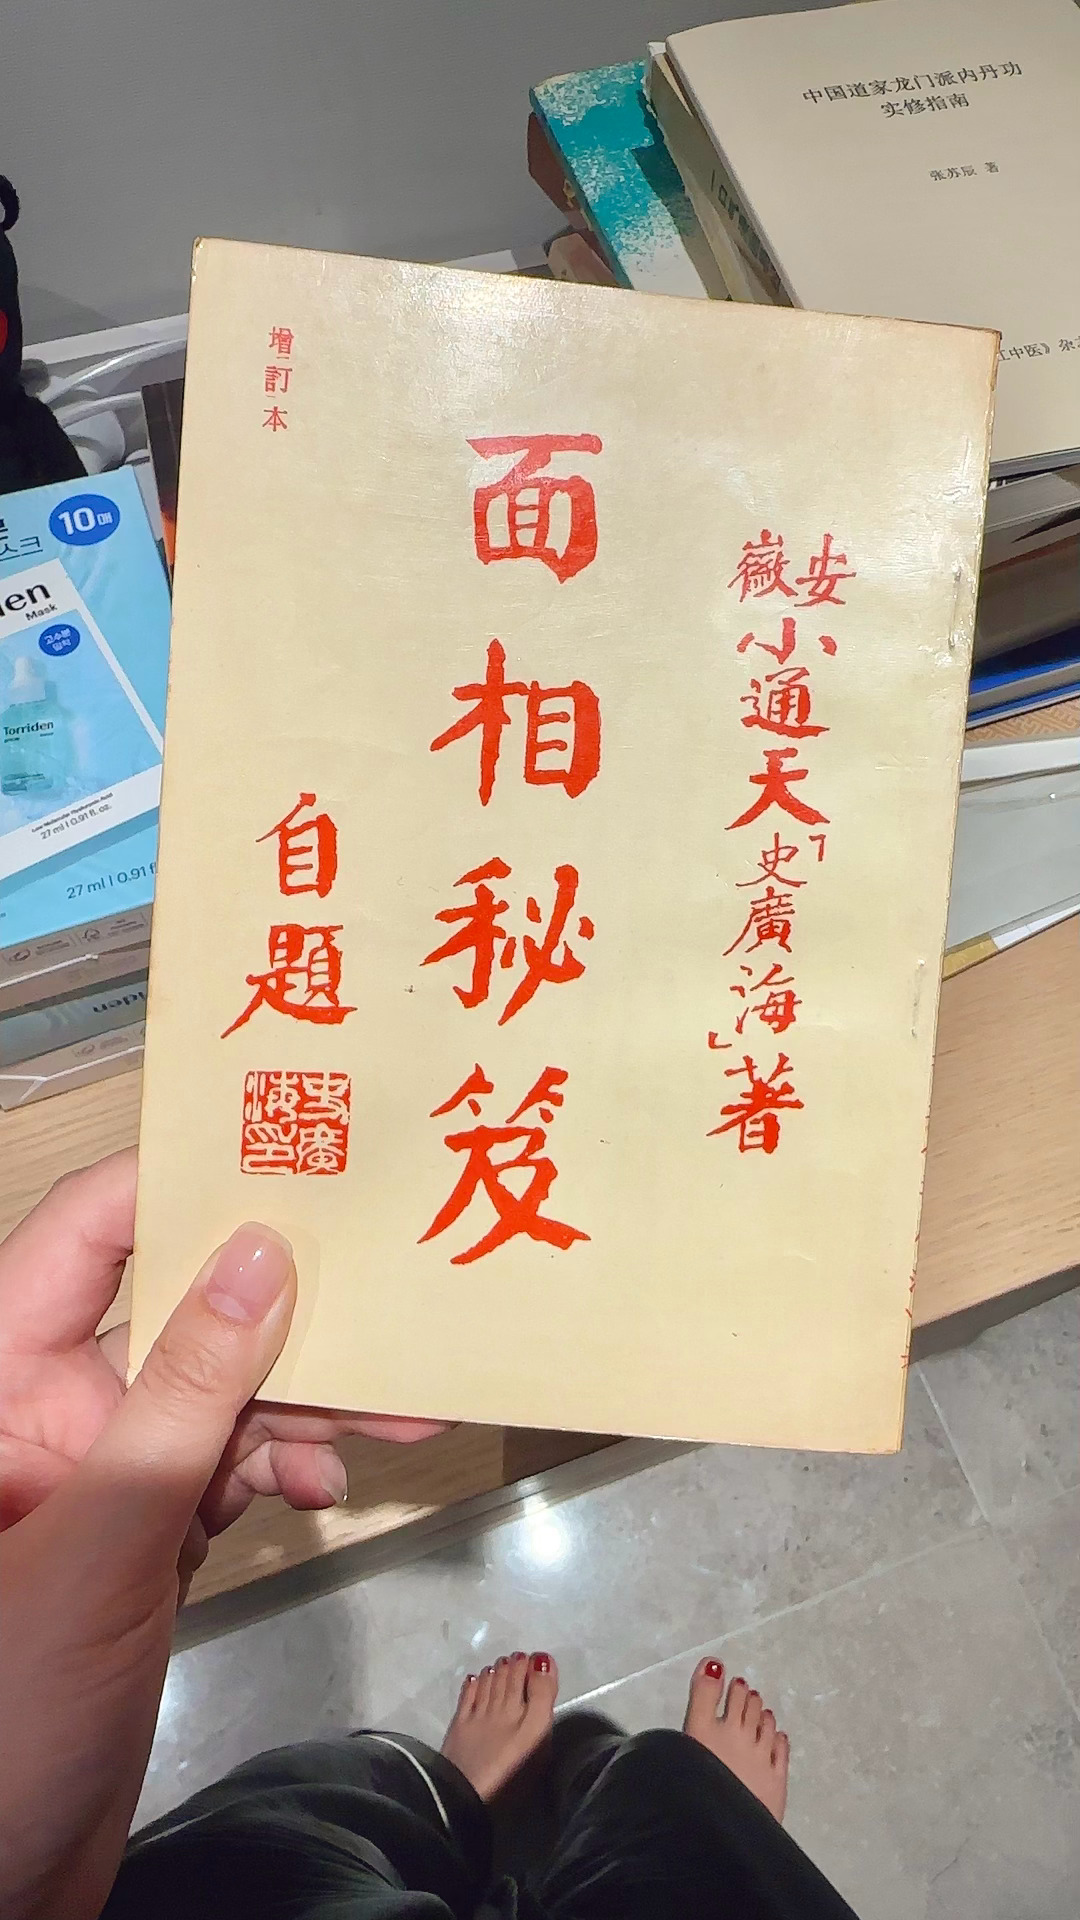 中国道家龙门派内丹功
实修指南
张苏辰 著
中医》杂
增訂本
安徽小通天「史廣海」著
面相秘笈
自題
史廣海印
10매
스크
Mask
고수분
Torriden
Low Molecular Hyaluronic Acid
27 ml | 0.91 fl. oz.
27 ml | 0.91 fl